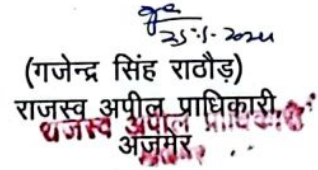 25.1.2024
(गजेन्द्र सिंह राठौड़)
राजस्व अपील प्राधिकारी
राजस्व अपील प्राधिकारी
अजमेर